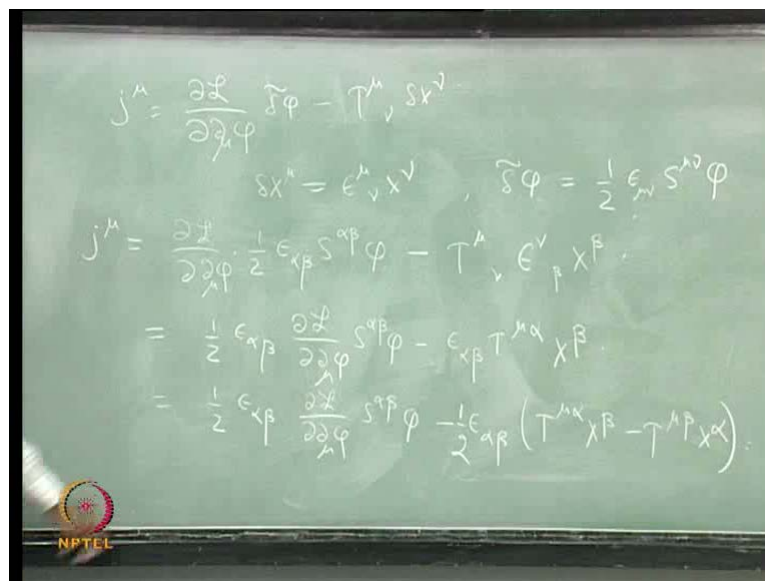 j^μ = ∂ℒ/∂∂_μφ δ̃φ − T^μ_ν δx^ν
δx^μ = ϵ^μ_ν x^ν , δ̃φ = 1/2 ϵ_μν S^μν φ
j^μ = ∂ℒ/∂∂_μφ · 1/2 ϵ_αβ S^αβ φ − T^μ_ν ϵ^ν_β x^β .
= 1/2 ϵ_αβ ∂ℒ/∂∂_μφ S^αβ φ − ϵ_αβ T^μα x^β .
= 1/2 ϵ_αβ ∂ℒ/∂∂_μφ S^αβ φ − 1/2 ϵ_αβ (T^μα x^β − T^μβ x^α) .
NPTEL